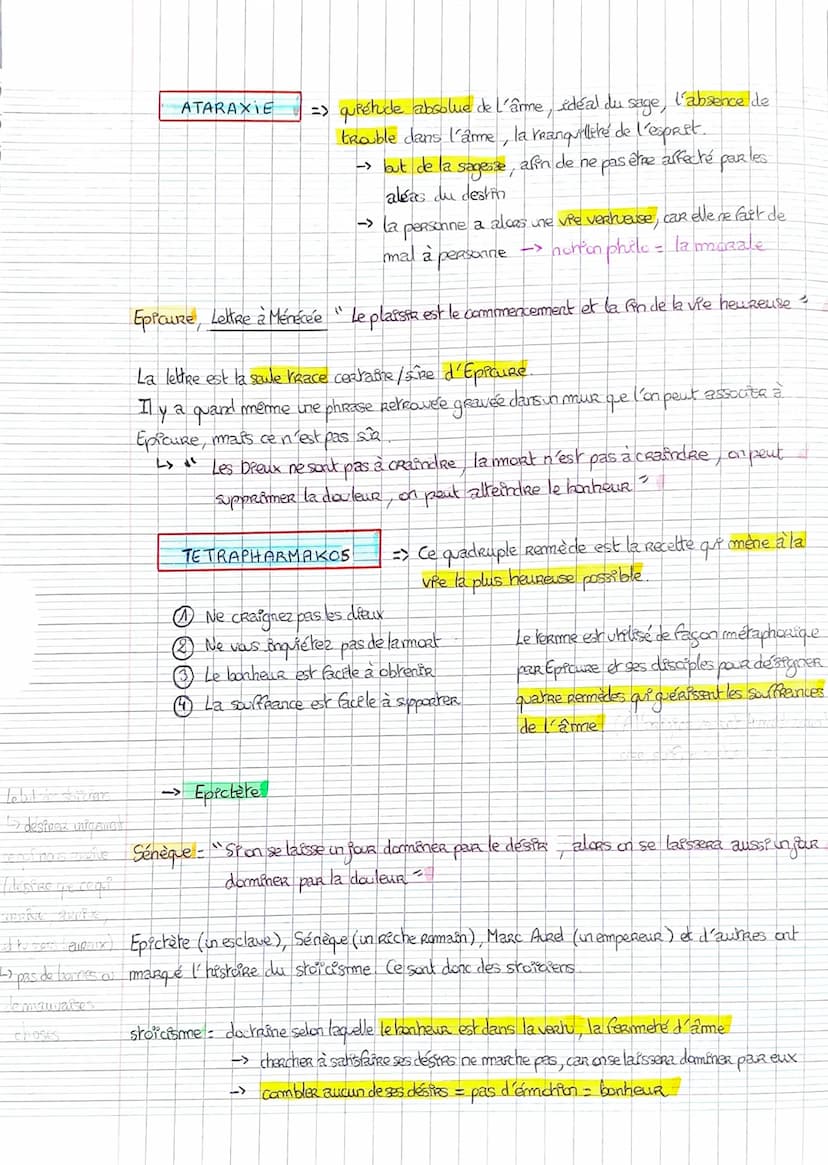 ATARAXIE => quiétude absolue de l'âme, idéal du sage, l'absence de
trouble dans l'âme, la tranquillité de l'esprit.
→ but de la sagesse, afin de ne pas être affecté par les
aléas du destin
→ la personne a alors une vie vertueuse, car elle ne fait de
mal à personne → notion philo = la morale
Epicure, Lettre à Ménécée " Le plaisir est le commencement et la fin de la vie heureuse "
La lettre est la seule trace certaine/sûre d'Epicure.
Il y a quand même une phrase retrouvée gravée dans un mur que l'on peut associer à
Epicure, mais ce n'est pas sûr.
↳ " Les Dieux ne sont pas à craindre, la mort n'est pas à craindre, on peut
supprimer la douleur, on peut atteindre le bonheur "
TETRAPHARMAKOS => Ce quadruple remède est la recette qui mène à la
vie la plus heureuse possible.
① Ne craignez pas les dieux
② Ne vous inquiétez pas de la mort
③ Le bonheur est facile à obtenir
④ La souffrance est facile à supporter
Le terme est utilisé de façon métaphorique
par Epicure et ses disciples pour désigner
quatre remèdes qui guérissent les souffrances
de l'âme
→ Epictète
Sénèque = "Si on se laisse un jour dominer par le désir, alors on se laissera aussi un jour
dominer par la douleur "
Epictète (un esclave), Sénèque (un riche Romain), Marc Aurel (un empereur) et d'autres ont
marqué l'histoire du stoïcisme. Ce sont donc des stoïciens.
stoïcisme = doctrine selon laquelle le bonheur est dans la vertu, la fermeté d'âme
→ chercher à satisfaire ses désirs ne marche pas, car on se laissera dominer par eux
→ combler aucun de ses désirs = pas d'émotion = bonheur
↳ pas de bonnes ou
de mauvaises
choses